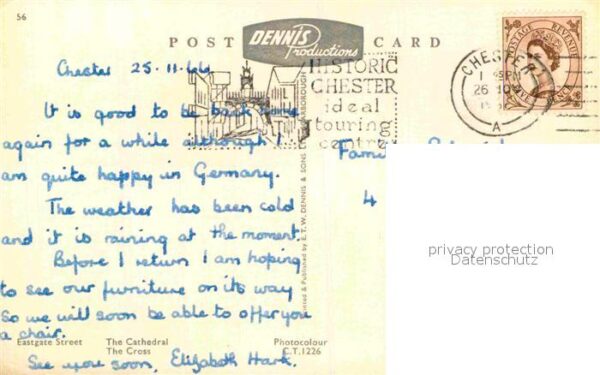 56
POST CARD
DENNIS
Productions
Chester 25-11-66
HISTORIC
CHESTER
ideal
touring
centre
CHESTER
26 NOV
A
POSTAGE REVENUE
It is good to be back home
again for a while although I
am quite happy in Germany.
The weather has been cold
and it is raining at the moment.
Before I return I am hoping
to see our furniture on its way
So we will soon be able to offer you
a chair.
See you soon, Elizabeth
4
Printed & Published by E. T. W. DENNIS & SONS SCARBOROUGH
privacy protection
Datenschutz
Eastgate Street
The Cathedral
The Cross
Photocolour
C.T.1226